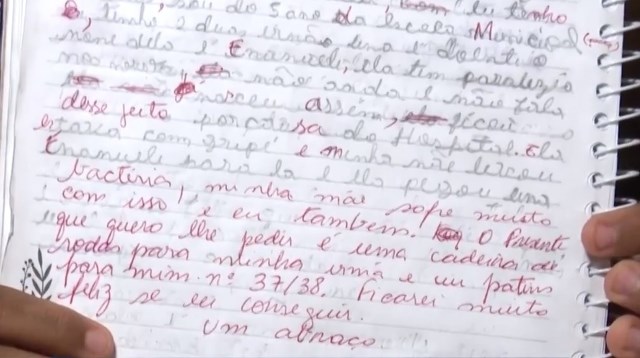 sou do 5 ano da Escola Municipal
tenho 2 duas irmãs uma é doente o
nome dela é Emanueli, ela tem paralezia
não anda e não fala
nasceu assim, ficou
desse jeito porcausa do Hospital. Ela
estava com gripe e minha mãe levou
Emanueli para la e ela pegou uma
bactéria, minha mãe sofre muito
com isso e eu tambem. O Presente
que quero lhe pedir é uma cadeira de
rodas para minha irma e um patins
para mim. nº 37/38. Ficarei muito
feliz se eu conseguir.
Um abraço